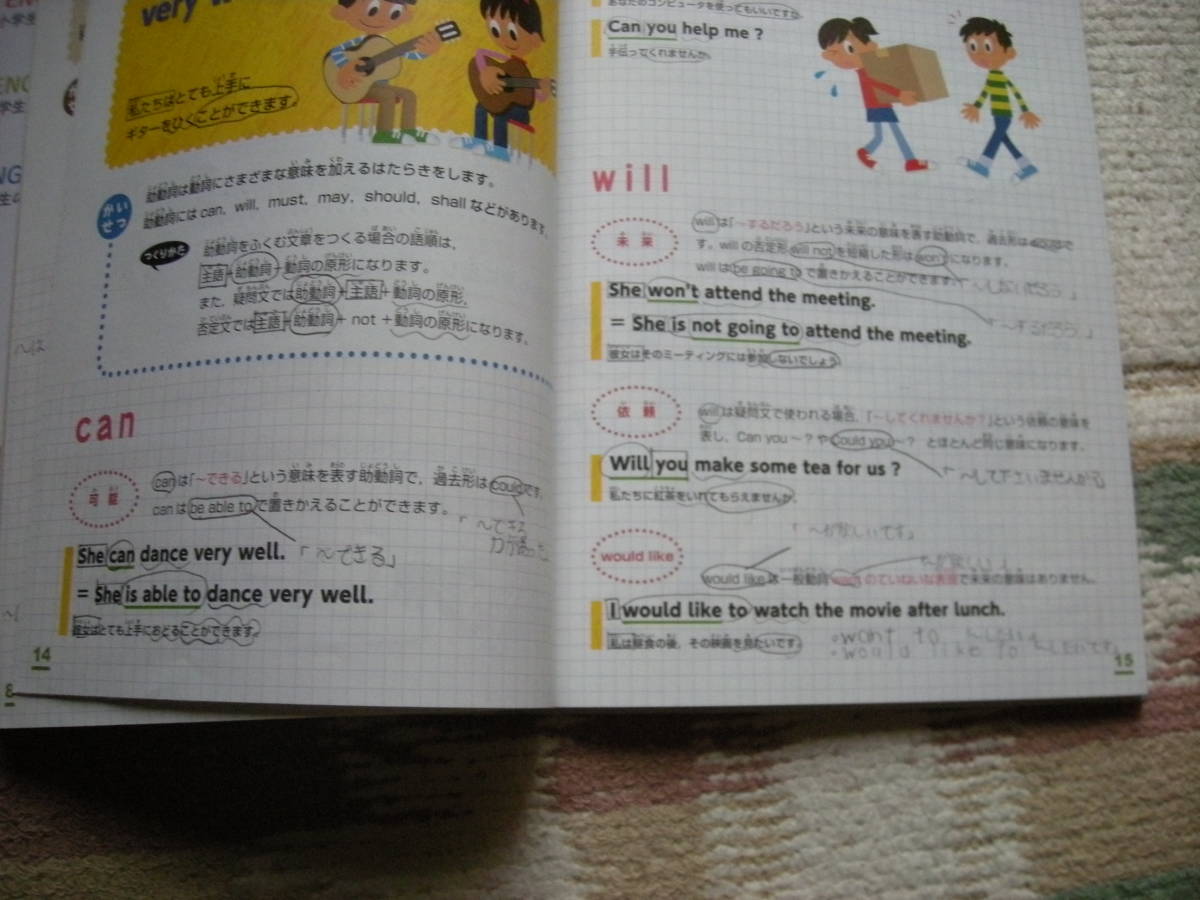 very w
私たちはとても上手に
ギターをひくことができます。
かいせつ
助動詞は動詞にさまざまな意味を加えるはたらきをします。
助動詞にはcan, will, must, may, should, shallなどがあります
つくりかた
助動詞をふくむ文章をつくる場合の語順は、
主語+助動詞+動詞の原形になります。
また、疑問文では助動詞+主語+動詞の原形、
否定文では主語+助動詞+ not +動詞の原形になります。
can
可能
canは「〜できる」という意味を表す助動詞で、過去形はcouldです。
canはbe able toで置きかえることができます。
「〜できる
She can dance very well.
「〜できる」
= She is able to dance very well.
彼女はとても上手におどることができます。
14
あなたのコンピュータを使ってもいいですか。
Can you help me ?
手伝ってくれませんか。
will
未来
willは「〜するだろう」という未来の意味を表す助動詞で、過去形はwouldで
す。willの否定形will notを短縮した形はwon'tになります。
willはbe going toで置きかえることができます。
「〜しないだろう」
She won't attend the meeting.
「〜するだろう」
= She is not going to attend the meeting.
彼女はそのミーティングには参加しないでしょう。
依頼
willは疑問文で使われる場合、「〜してくれませんか?」という依頼の意味を
表し、Can you 〜 ? やCould you 〜 ? とほとんど同じ意味になります。
Will you make some tea for us ?
「〜して下さいませんか」
私たちに紅茶をいれてもらえませんか。
「〜が欲しいです」
would like
「〜が欲しい」
would likeは一般動詞wantのていねいな表現で未来の意味はありません。
I would like to watch the movie after lunch.
私は昼食の後、その映画を見たいです。
・want to 〜したい
・would like to 〜したいです
15
8
〜は